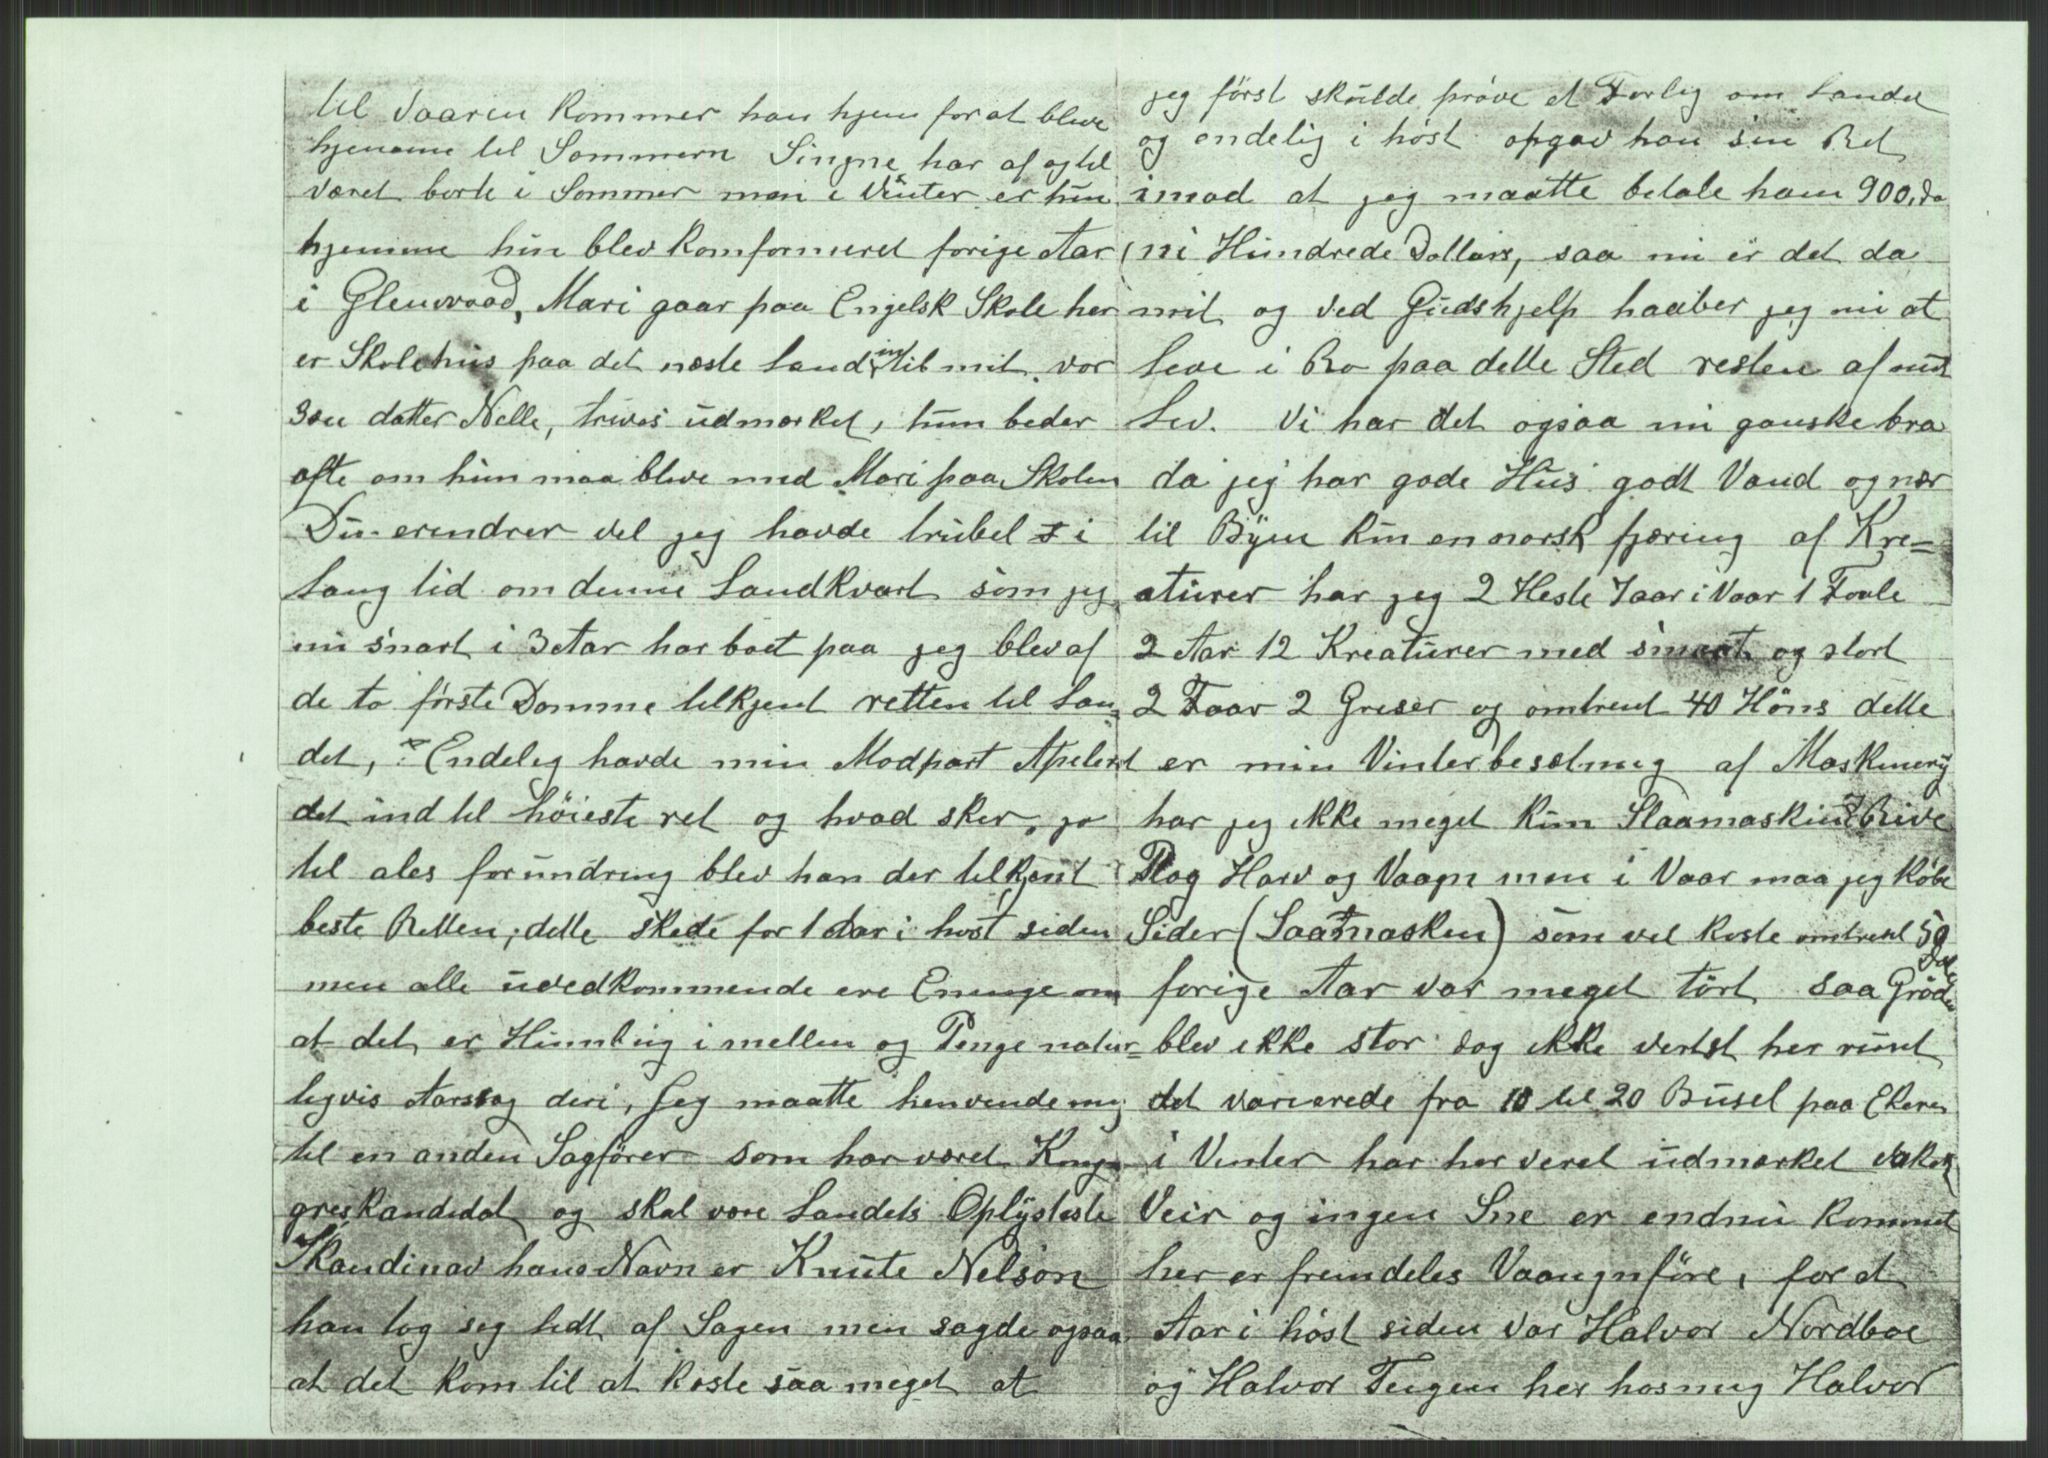 til Vaaren kommer han hjem for at blive
hjemme til Sommern Singne har af og til
været borte i Sommer men i Vinter er hun
hjemme hun blev komformeret forige Aar
i Glenwood, Mari gaar paa Engelsk Skole her
er Skolehus paa det næste Land intil mit vor
3die datter Nelle, trives udmærket, hun beder
ofte om hun maa blive med Mari paa Skolen
Du erindrer vel jeg havde trubel i
lang tid om denne Landkvart som jeg
nu snart i 3 Aar har boet paa jeg blev af
de to første Domme tilkjent retten til Lan=
det, Endelig havde min Modpart Apelert
det ind til høieste ret og hvad sker, jo
til ales forundring blev han der tilkjent
beste Retten, dette skede for 1 Aar i høst siden
men alle uvedkommende ere Eninge om
at det er Humbug i mellem og Penge natur=
ligvis Aarsag deri, Jeg maatte henvende mig
til en anden Sagfører som har været Kong=
greskandidat og skal være Landets Oplysteste
Skandinav hans Navn er Knute Nelson
han tog seg lidt af Sagen men sagde ogsaa
at det kom til at koste saa meget at
jeg først skulde prøve et Forlig om Landet
og endelig i høst opgav han sin Ret
imod at jeg maatte betale ham 900, Do
(ni Hundrede Dollars, saa nu er det da
mit og ved Gudshjelp haaber jeg nu at
leve i Ro paa dette Sted resten af mit
Liv. Vi har det ogsaa nu ganske bra
da jeg har gode Hus godt Vand og nær
til Byen kun en norsk fjæring af Kre=
aturer har jeg 2 Heste 1 aar i Vaar 1 Fole
2 Aar 12 Kreaturer med smaat og stort
2 Faar 2 Griser og omtrent 40 Høns dette
er min Vinterbesætning af Maskinery
har jeg ikke meget kun Slaamaskin Rive
Plog Harv og Vaagn men i Vaar maa jeg købe
Sider (Saamaskin) som vel koste omtrent 50
Dol
forige Aar var meget tørt saa Grøden
blev ikke stor dog ikke verst her rundt
det varierede fra 10 til 20 Busel paa Ekeren
i Vinter har her veret udmærket vakert
Veir og ingen Sne er endnu kommet
her er fremdeles Vaangnføre, for et
Aar i høst siden var Halvor Nordboe
og Halvor Teigen her hos mig Halvor